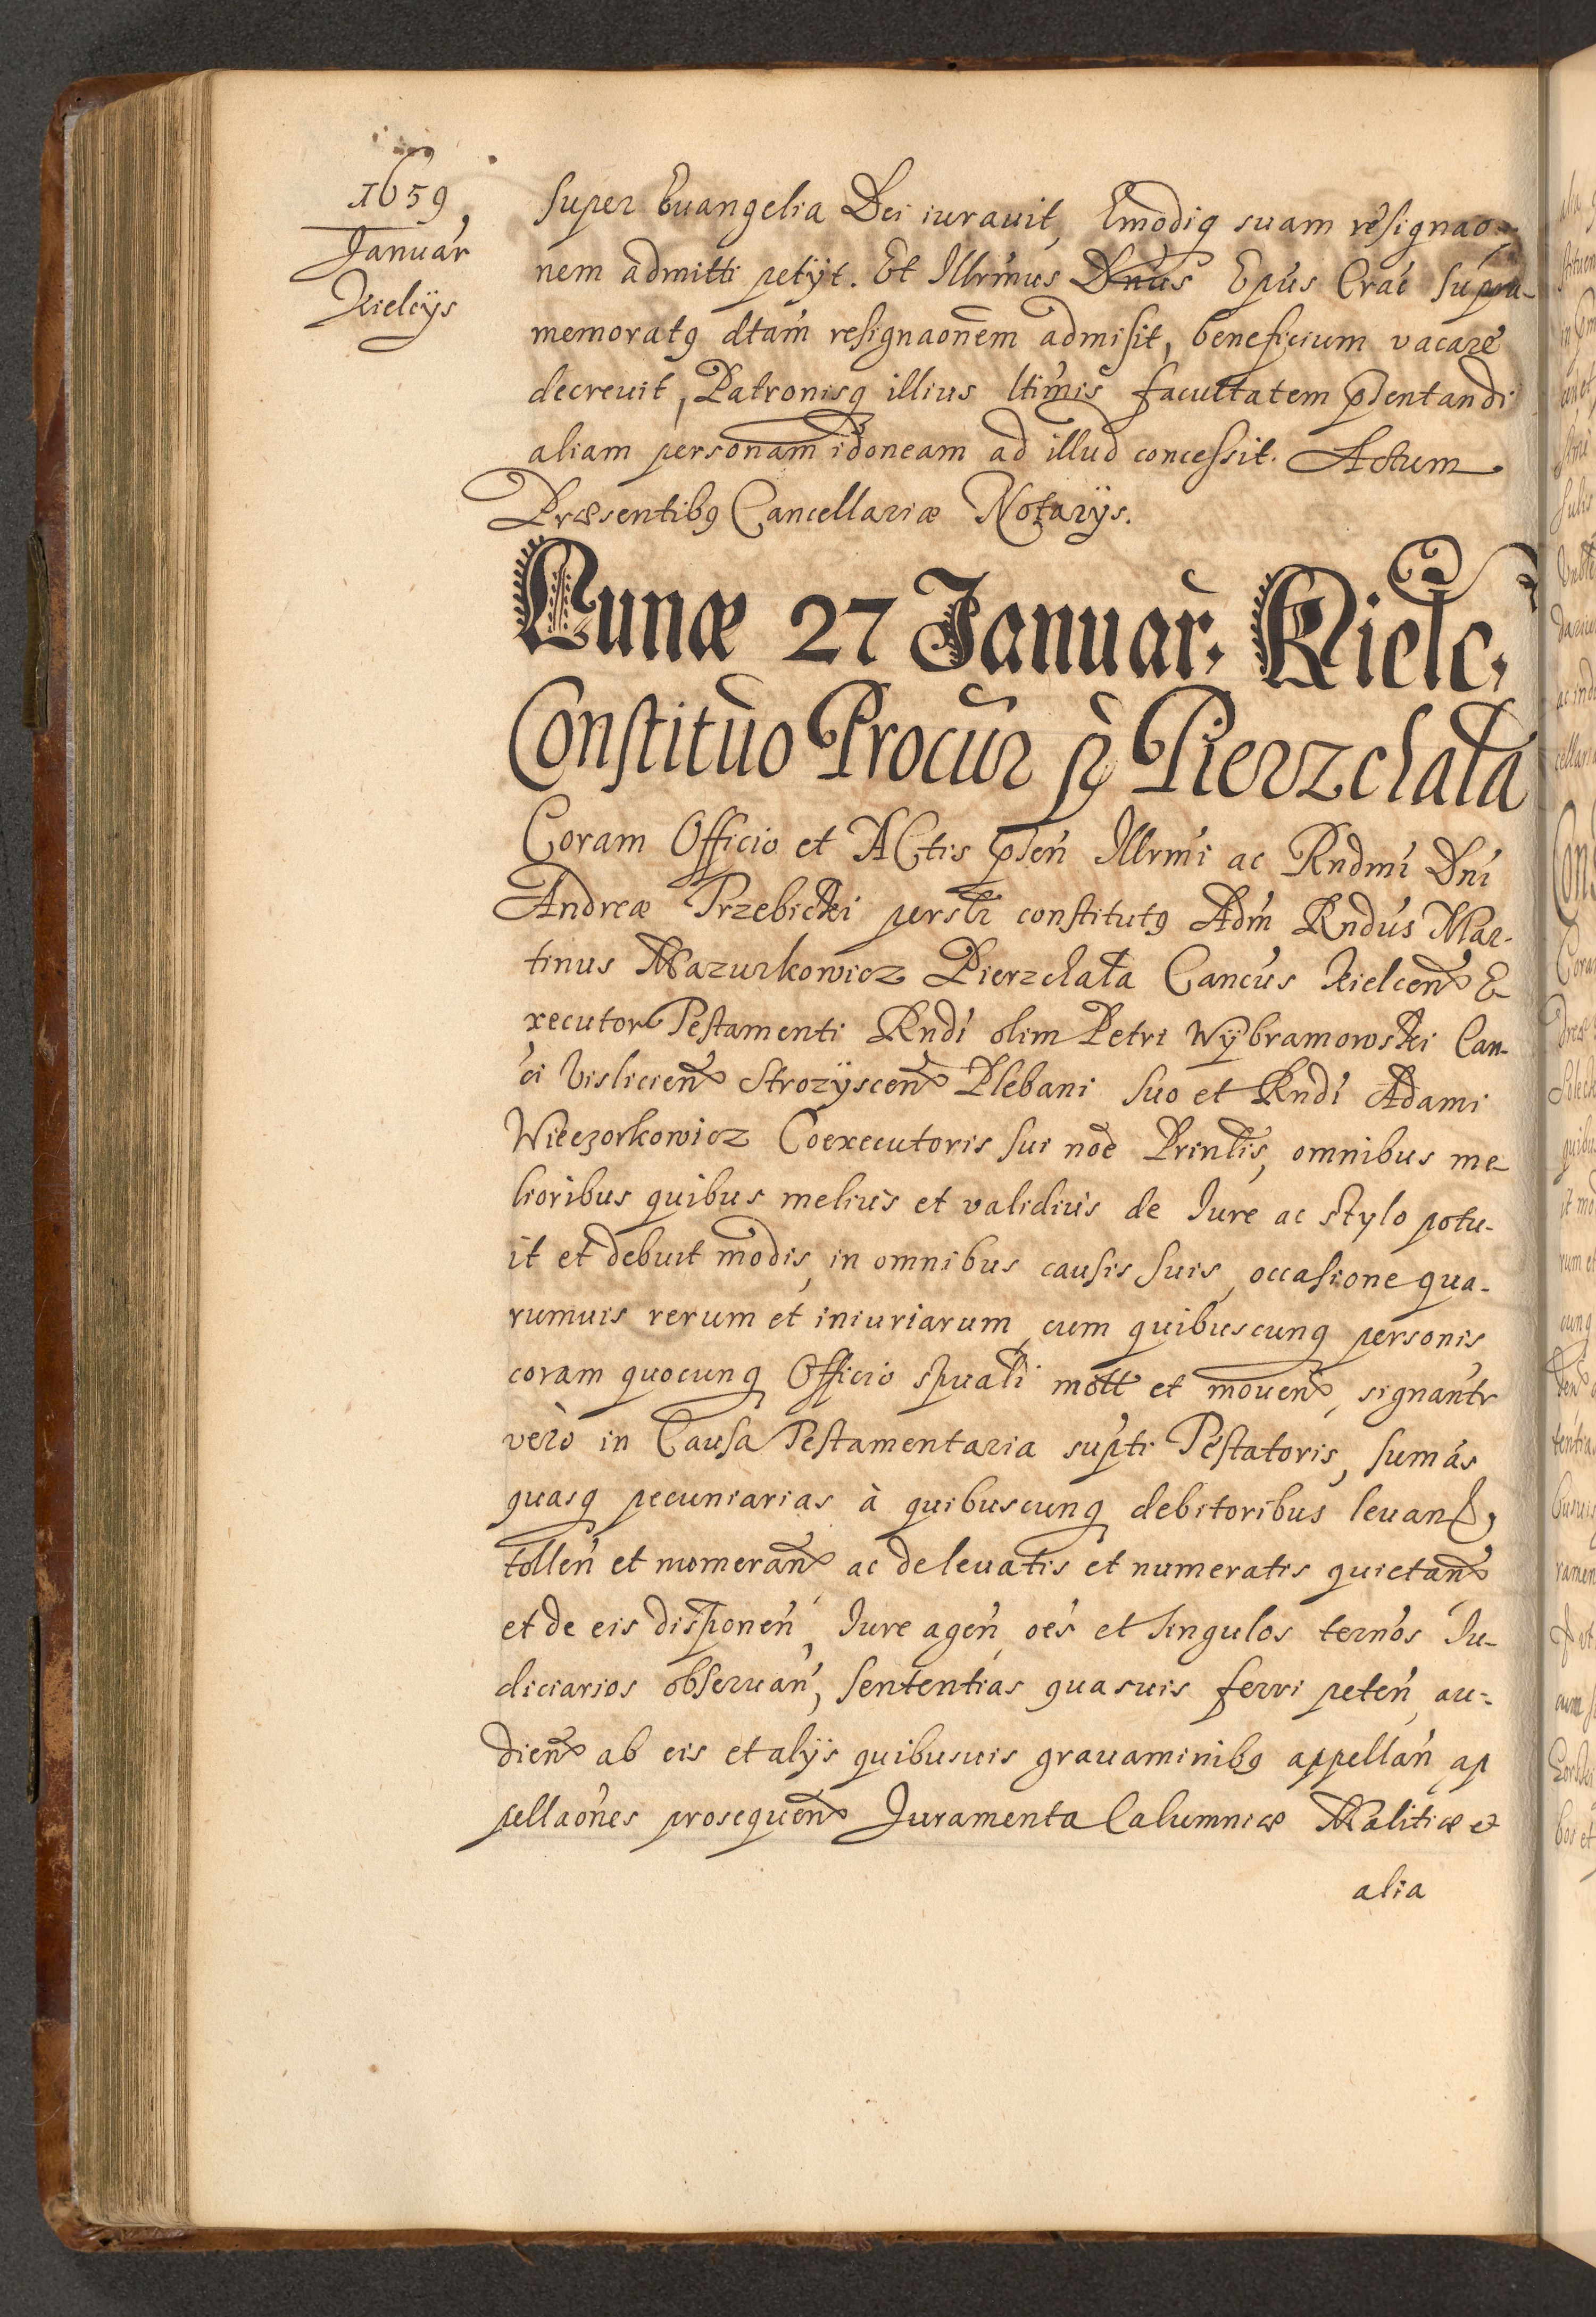 1659
Januar
Kielcÿs
super Euangelia Dei iurauit, Emodiq suam resignao-
nem admitti petÿt. Et Illrmus Dnus Epus Crac supra-
memoratq dtam resignaonem admisit, beneficium vacare
decreuit, Patronisq illius ltimis facultatem pntandi
aliam personam idoneam ad illud concessit. Actum
Præsentibq Cancellariæ Notarÿs.
Lunæ 27 Januar. Kielc.
Constituo Procur p Pierzchała
Coram Officio et Actis psen Illrmi ac Rndmi Dni
Andreæ Trzebicki persłr constitutq Adm Rndus Mar-
tinus Mazurkowicz Pierzchała Cancus Kielcen E
xecutor Testamenti Rndi olim Petri Wÿbramowski Can-
ci Vislicien Strozÿscen Plebani suo et Rndi Adami
Wieczorkowicz Coexecutoris sui noe Prinlis, omnibus me-
lioribus quibus melius et validius de Iure ac stylo potu-
it et debuit modis, in omnibus causis suis, occasione qua-
rumuis rerum et iniuriarum, cum quibuscunq personis
coram quocunq Officio spuali mott et mouen, signantr
verò in Causa Testamentaria supti Testatoris, sumas
quasq pecuniarias à quibuscunq debitoribus leuand,
tollen et numeran ac de leuatis et numeratis quietan
et de eis disponen, Iure agen, oes et singulos ternos Iu-
diciarios obseruan, sententias quasuis ferri peten, au-
dien ab eis et alÿs quibusuis grauaminibq appellan, ap
pellaones prosequen Juramenta Calumniæ Malitiæ et
alia